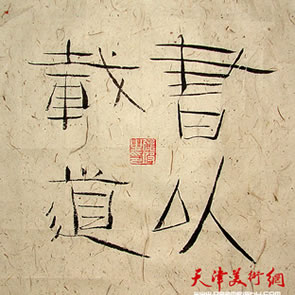 書以
載道
天津美術網